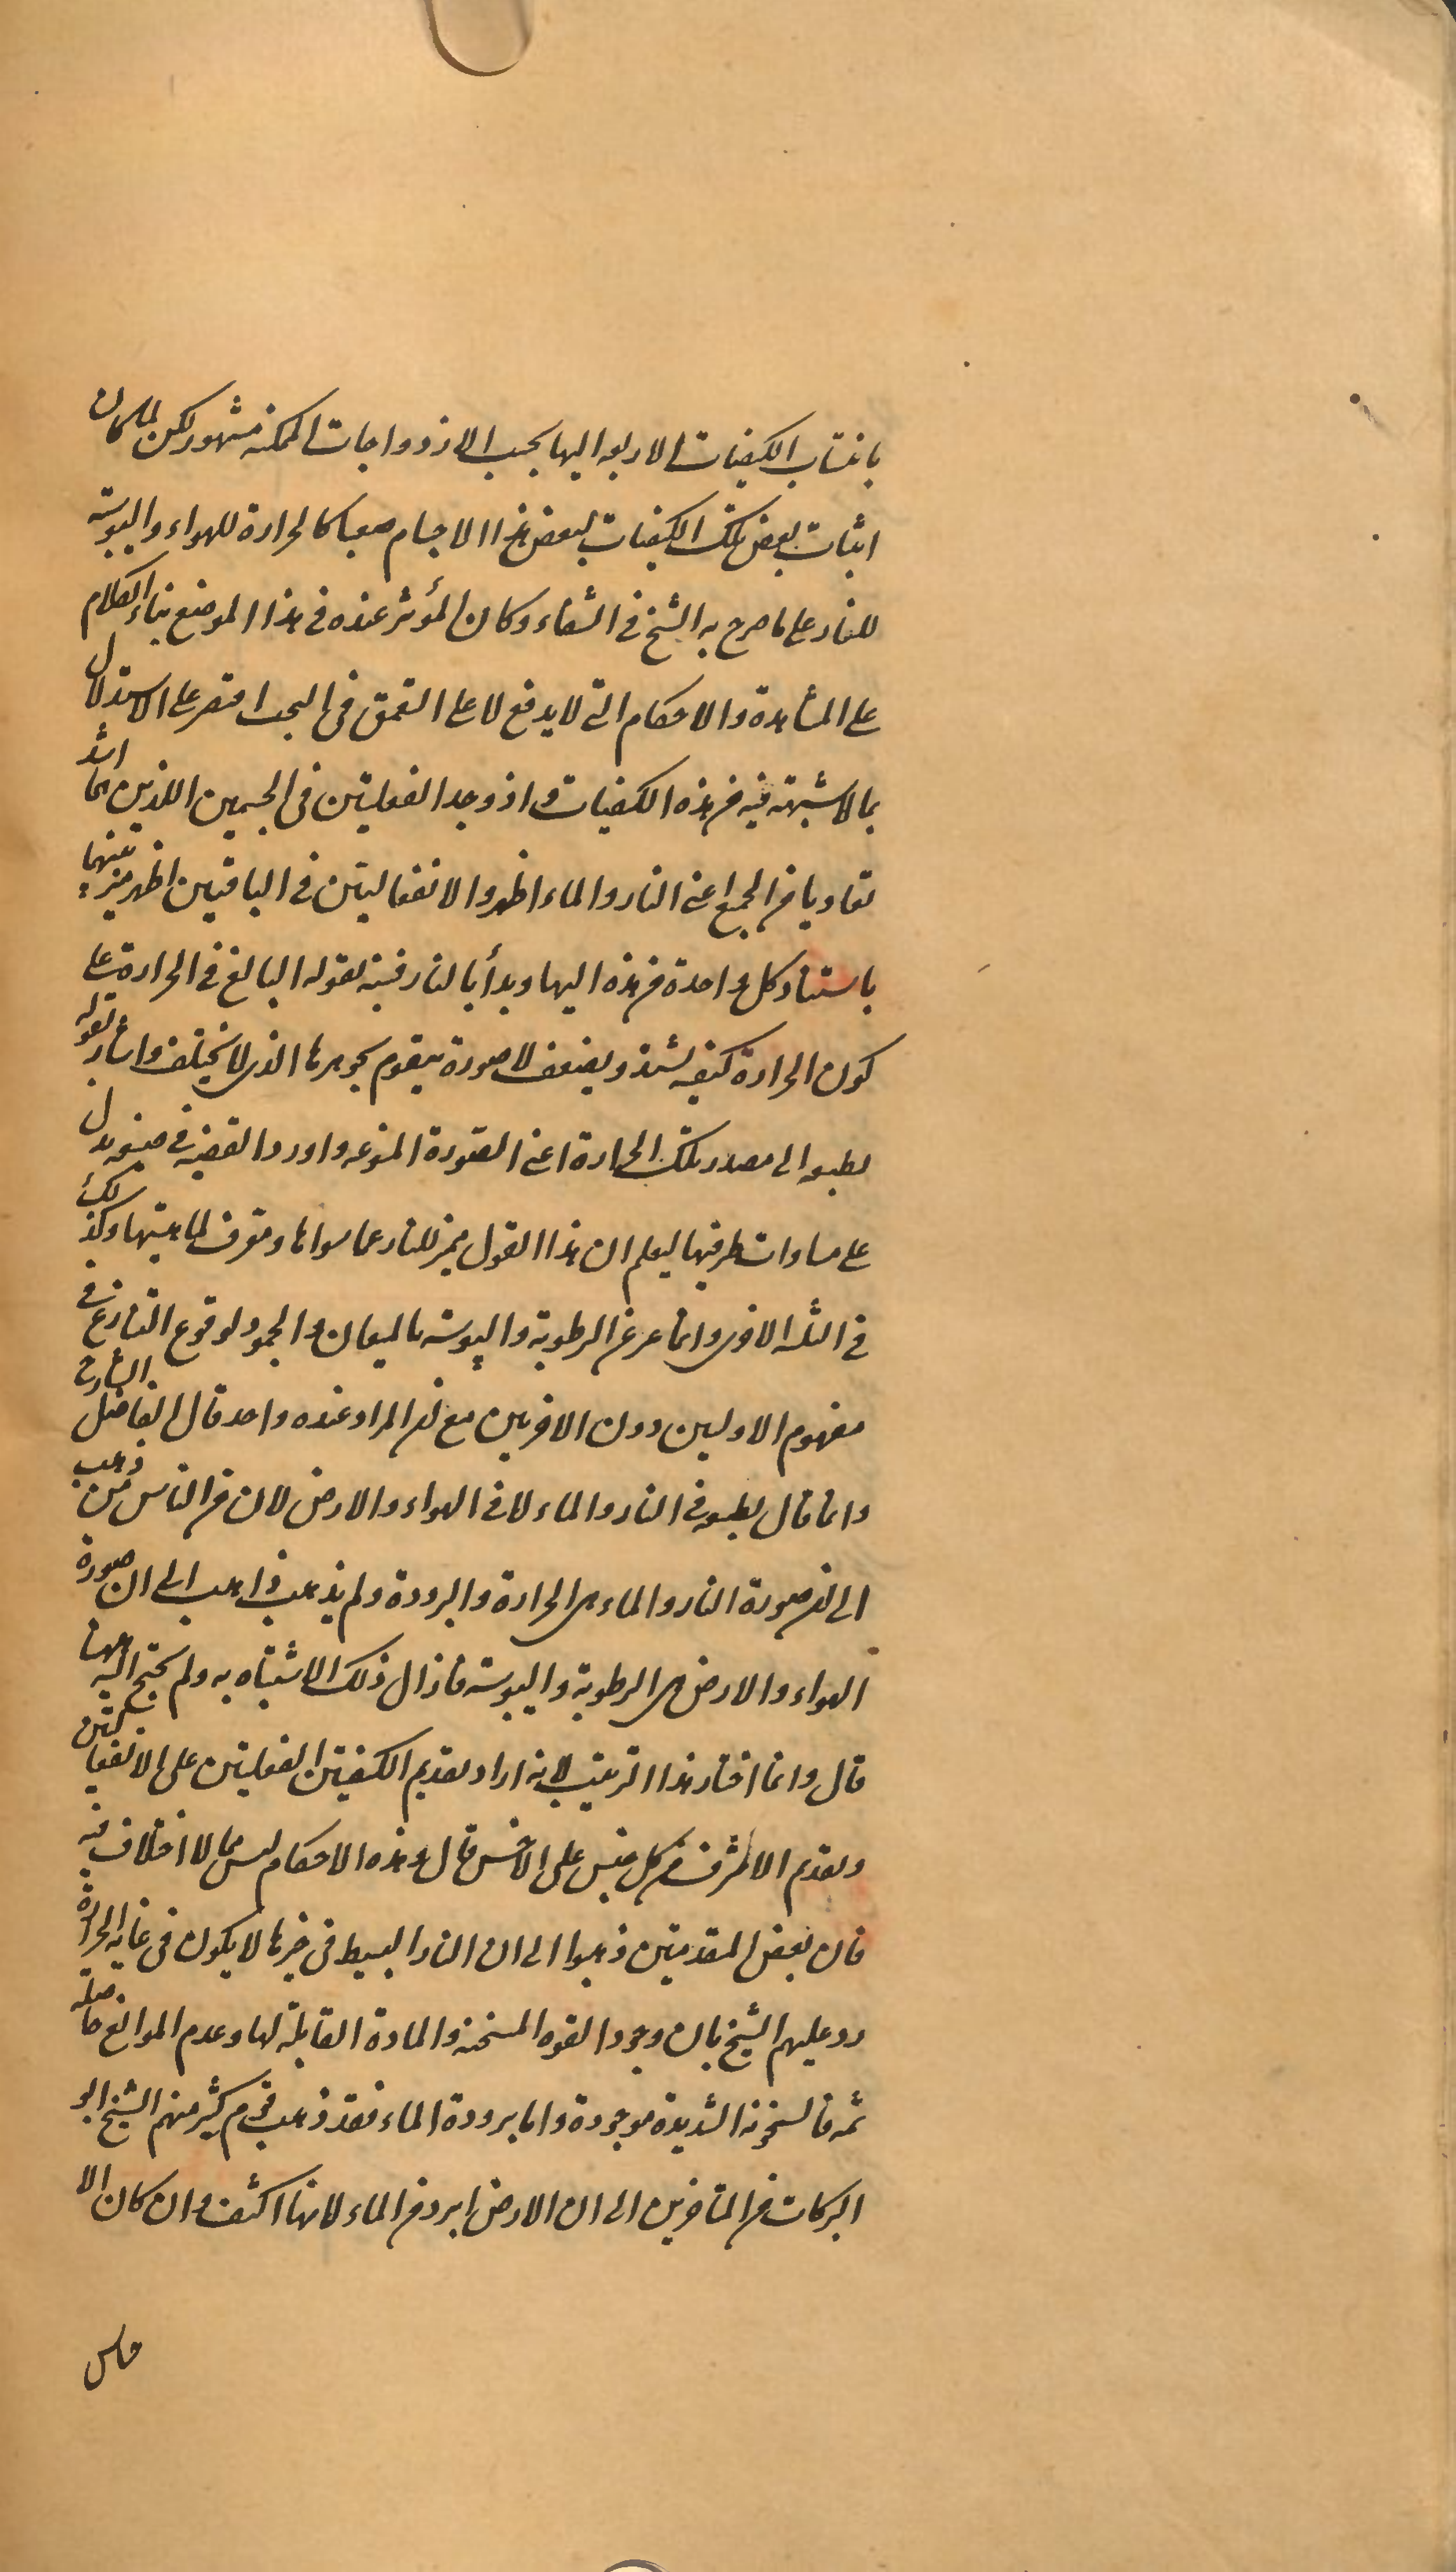 بانتساب الكيفيات الاربعه اليها بحسب الازدواجات الممكنه مشهور لكن لما كان
اثبات بعض تلك الكيفيات لبعض هذا الاجسام صعبا كالحرارة للهواء واليبوسة
للنار على ما صرح به الشيخ في الشفاء وكان المؤثر عنده في هذا الموضع بناء الكلام
على المشاهدة والاحكام التى لا يدفع لا على التعمق في البحث اقتصر على الاستدلال
بما لا شبهة فيه من هذه الكيفيات و اذ وجد الفعليتين في الجسمين اللذين هما اشد
تعاديا من الجمع اعنى النار والماء اظهر والانفعاليتين في الباقيين اظهر ميز بينهما
باستناد كل واحدة من هذه اليها وبدأ بالنار فنبه بقوله البالغ في الحرارة على
كون الحرارة كيفيه تشتد ويضعف لا صورة يتقوم بجوهرها الذى لا يختلف واشار بقوله
بطبعه الى مصدر تلك الحرارة اعنى الصورة المنوعه واورد القضيه في صيغه يدل
على مساوات طرفيها ليعلم ان هذا القول مميز للنار عما سواها ومعرف لماهيتها وكذلك
في الثلثه الاخرى وانما عبر عن الرطوبة واليبوسة بالميعان والجمود لوقوع التنازع في
مفهوم الاوليين دون الاخريين مع ان المراد عنده واحد قال الفاضل الشارح
وانما قال بطبعه في النار والماء لا في الهواء والارض لان من الناس من ذهب
الى ان صورة النار والماء هى الحرارة والبرودة ولم يذهب ذاهب الى ان صورة
الهواء والارض هى الرطوبة واليبوسة فازال ذلك الاشتباه به ولم يحتج اليه ههنا
قال وانما اختار هذا الترتيب لانه اراد تقديم الكيفيتين الفعليتين على الانفعاليتين
وتقديم الاشرف من كل جنس على الاخس قال وهذه الاحكام ليس مما لا اختلاف فيه
فان بعض المتقدمين ذهبوا الى ان النار البسيط في حيزها لا يكون في غاية الحرارة
ورد عليهم الشيخ بان وجود القوه المسخنه والمادة القابلة لها وعدم الموانع حاصلة
ثمه فالسخونه الشديدة موجودة واما برودة الماء فقد ذهب قوم كثير منهم الشيخ ابو
البركات من المتاخرين الى ان الارض ابرد من الماء لانها اكثف وان كان الا